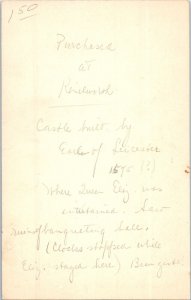 150
Purchased
at
Kenilworth
Castle built by
Earl of Leicester
1575 (?)
Where Queen Eliz. was
entertained. Saw
ruins of banqueting hall.
(Clocks stopped while
Eliz. stayed here)